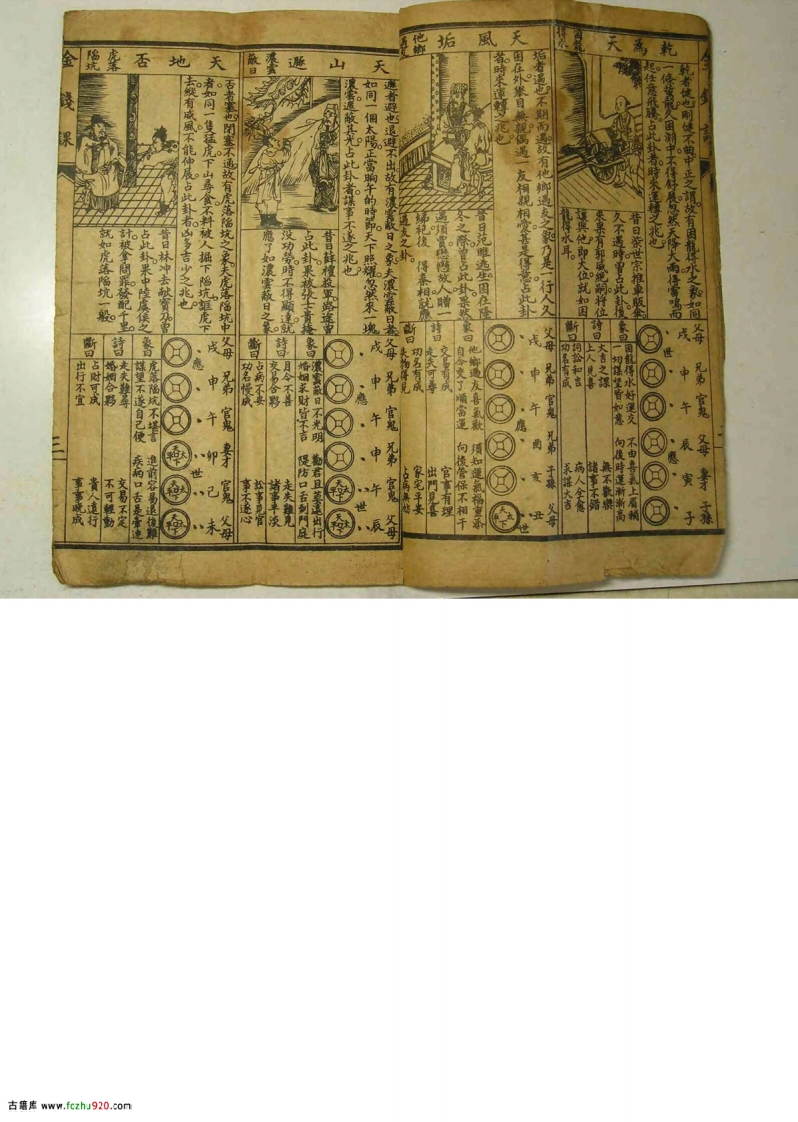 乾為天
困龍
得水
乾者健也剛健不曲中正之謂故有困龍得水之象如同
一條蟄龍久困淵中不得舒展忽然天降大雨得雷鳴而
起任意飛騰占此卦者時來運轉之兆也
昔日柴世宗推車販傘
久不遇時曾占此卦後
來果有郭威絕嗣將位
讓與他即大位就如困
龍得水耳
父母 戌 世
兄弟 申
官鬼 午
父母 辰 應
妻才 寅
子孫 子
象曰
困龍得水好運交 不由喜氣上眉梢
一切謀望皆如意 向後時運漸漸高
詩曰
大吉之課 無不歡樂
上人見喜 諸事不錯
斷曰
詞訟和吉 病人全愈
功名有成 求謀大吉
天風姤
他鄉
遇友
姤者遇也不期而遇故有他鄉遇友之象乃是一行人久
困在外舉目無親偶遇一友相親相愛甚是得意占此卦
者時來運轉之兆也
昔日范雎逃生困在隆
冬之際曾占此卦果然
遇須賈戀戀故人贈一
綈袍後得秦相就應
遇友之卦
父母 戌
兄弟 申
官鬼 午 應
兄弟 酉
子孫 亥
父母 丑 世
象曰
他鄉遇友喜氣歡 須知運氣福重添
自今交了順當運 向後管保不相干
詩曰
交易有成 官事有理
走失可尋 出門見喜
斷曰
功名有成 家宅平安
失物得見 占病無妨
天山遯
濃雲
蔽日
遯者避也退避不出故有濃雲蔽日之象夫濃雲蔽日者
如同一個太陽正當晌午的時節天下照耀忽然來一塊
濃雲遮蔽其光占此卦者謀事不遂之兆也
昔日薛禮投軍路途曾
占此卦果被張士貴掩
沒功勞時不得顯達就
應了如濃雲蔽日之象
父母 戌
兄弟 申 應
官鬼 午
兄弟 申
官鬼 午 世
父母 辰
象曰
濃雲蔽日不光明 勸君且莫遠出行
婚姻求財皆不吉 隄防口舌到門庭
詩曰
月令不善 走失難見
交易合夥 諸事平淡
斷曰
占病不妥 訟事見官
功名慢成 事不遂心
天地否
虎落
陷坑
否者塞也閉塞不通故有虎落陷坑之象夫虎落陷坑中
者如同一隻猛虎下山尋食不料被人掘下陷坑誆虎下
去縱有威風不能伸展占此卦者凶多吉少之兆也
昔日林冲去献寶刀曾
占此卦果中陸虞侯之
計被拿問罪發配千里
就如虎落陷坑一般
父母 戌 應
兄弟 申
官鬼 午
妻才 卯 世
官鬼 巳
父母 未
象曰
虎落陷坑不堪言 進前容易退後難
謀望不遂自己便 疾病口舌是牽連
詩曰
走失難尋 交易不定
婚姻合夥 不可輕動
斷曰
占財可成 貴人遠行
出行不宜 事事晚成
金錢課
三
古籍库 www.fczhu920.com